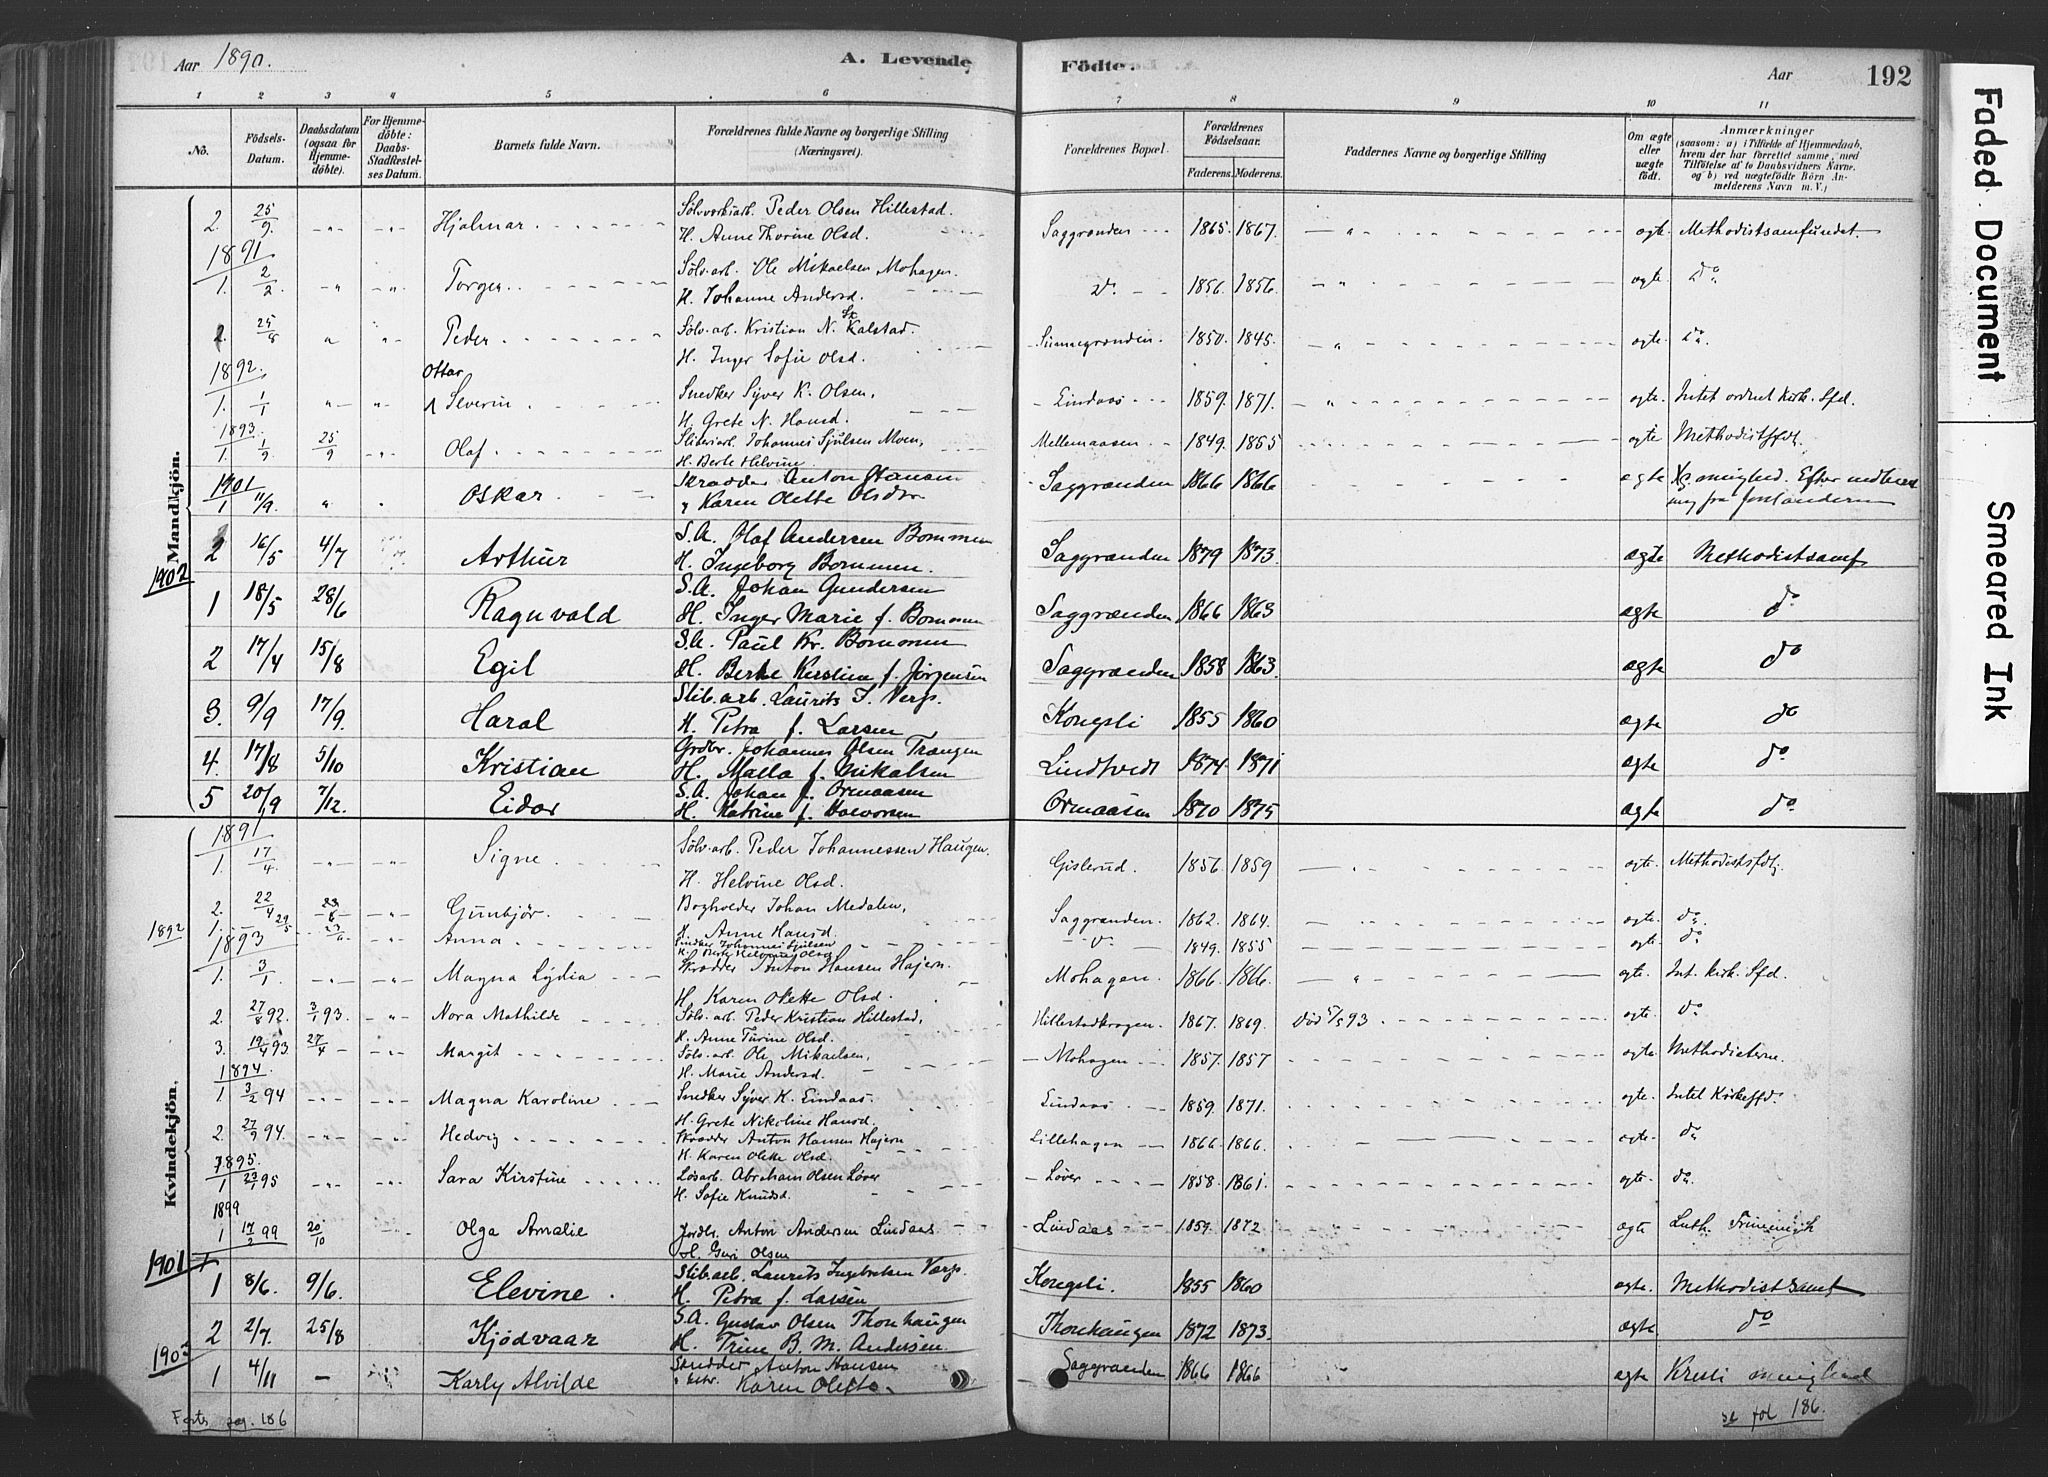 Aar 1890. A. Levende Födte. Aar 192
1 2 3 4 5 6 7 8 9 10 11
No. Födsels-Datum. Daabsdatum (ogsaa for Hjemmedöbte). For Hjemmedöbte: Daabs-Stadfæstelses Datum. Barnets fulde Navn. Forældrenes fulde Navne og borgerlige Stilling (Næringsvei). Forældrenes Bopæl. Forældrenes Födselsaar. Faderens. Moderens. Faddernes Navne og borgerlige Stilling Om ægte eller uægte födt. Anmærkninger (saasom: a) i Tilfælde af Hjemmedaab, hvem der har forrettet samme, med Tilföielse af to Daabsvidners Navne, og b) ved uægtefödte Börn Anmelderens Navn m. V.)
Mandkjön.
2. 25/9. Hjalmar Sölvverksarb. Peder Olsen Hillestad. Saggrenden 1865. 1867. ægte. Methodistsamfundet.
H. Anne Thorine Olsd.
1891
1. 2/2. Torger Sölv.arb. Ole Mikaelsen Mohagen. do. 1856. 1856. ægte do
H. Johanne Andersd.
2. 25/8 Peder Sölv.arb. Kristian N. Kalstad. 1850. 1845. ægte. do.
H. Inger Sofie Olsd.
1892.
1. 1/1 Ottar Severin Snedker Syver K. Olsen, Lindaas 1859. 1871. ægte. Intet ordnet Kirk. Sfd.
H. Grete N. Hansd.
1893.
1. 1/9. 25/9 Olaf Johannes Sjulsen Moen, Mellemaasen 1849. 1855 ægte Methodistsfdg.
H. Berte Helvine.
1901
1 11/9. Oskar Skrædder Anton Hansen Saggrenden 1866 1866 ægte Efter
Karen Olette Olsdtr.
2 16/5 4/7 Arthur S.A. Olaf Andersen Bommen Saggrænden 1879 1873. ægte Methodistsamf
H. Ingeborg Bommen.
1902
1 18/5 28/6 Ragnvald S.A. Johan Gundersen Saggrænden 1866 1863 ægte do
H. Inger Marie f. Bommen
2 17/4 15/8 Egil S.A. Paul Kr. Bommen Saggrænden 1858 1863. ægte do
H. Berthe Kirstine f. Jörgensen
3. 9/9 17/9. Haral Slib.arb. Laurits I. Verp. Kongsli 1855 1860 ægte do
H. Petra f. Larsen
4. 17/8 5/10 Kristian Grdbr. Johannes Olsen Trangen Lindtvedt 1874 1871 ægte do
H. Malla f. Mikalsen
5 20/9 7/12. Eidar S.A. Johan J. Ormaasen Ormaasen 1870 1875 ægte do
H. Katrine f. Halvorsen
Kvindekjön.
1891
1. 17/4. Signe Sölv.arb. Peder Johannessen Haugen. Gislerud. 1856. 1859 ægte. Methodistsfdg.
H. Helvine Olsd.
2. 22/4 23/8 Gunbjör Bogholder Johan Medalen, Saggrenden 1862. 1864. ægte. do
H. Anne Hansd.
1892 1. 29/5 23/6 Anna Snedker Johannes Sjulsen do 1849. 1855 ægte. do
H. Berte Helvine Olsd.
1893
1. 3/1 Magna Lydia Skrædder Anton Hansen Hajern. Mohagen. 1866. 1866. ægte. Int. kirk. Sfd.
H. Karen Olette Olsd.
2. 27/8 92. 3/1 93. Nora Mathilde Sölv.arb. Peder Kristian Hillestad, Hillestadkragen. 1867. 1869. Död 5/5 93 ægte. do
H. Anne Turine Olsd.
3. 19/4 93. 27/4 Margit Sölv.arb. Ole Mikaelsen, Mohagen 1857. 1857 ægte Methodisterne.
H. Marie Andersd.
1894.
1. 3/2 94 Magna Karoline Snedker Syver K. Lindaas. Lindaas. 1859. 1871. ægte. Intet Kirkesfd.
H. Grete Nikoline Hansd.
2. 27/9 94. Hedvig Skrædder Anton Hansen Hajern Lillehagen 1866. 1866. ægte. do
H. Karen Olette Olsd.
1895.
1 23/1 95 Sara Kirstine Lösarb. Abraham Olsen Löver Löver 1858. 1861. ægte. do.
H. Sofie Knudsd.
1899
1 17/2 99 20/10 Olga Amalie Jordbr. Anton Andersen Lindaas Lindaas 1859. 1872 ægte Luth. Frimenigh
H. Guri Olsen
1901
1 8/6. 9/6. Elevine. Slib.arb. Laurits Ingebretsen Verp. Kongsli. 1855 1860 ægte. Methodistsamf
H. Petra f. Larsen
2 2/7. 25/8 Kjödvaar S.A. Gustav Olsen Thonhaugen Thonhaugen 1872 1873. ægte do
H. Trine B. M. Andersen.
1903
1 4/11 Karly Alvilde Skrædder Anton Hansen Saggrænden 1866 1866 ægte
Karen Olette
Forts pag. 186 se fol 186.
Faded Document
Smeared Ink